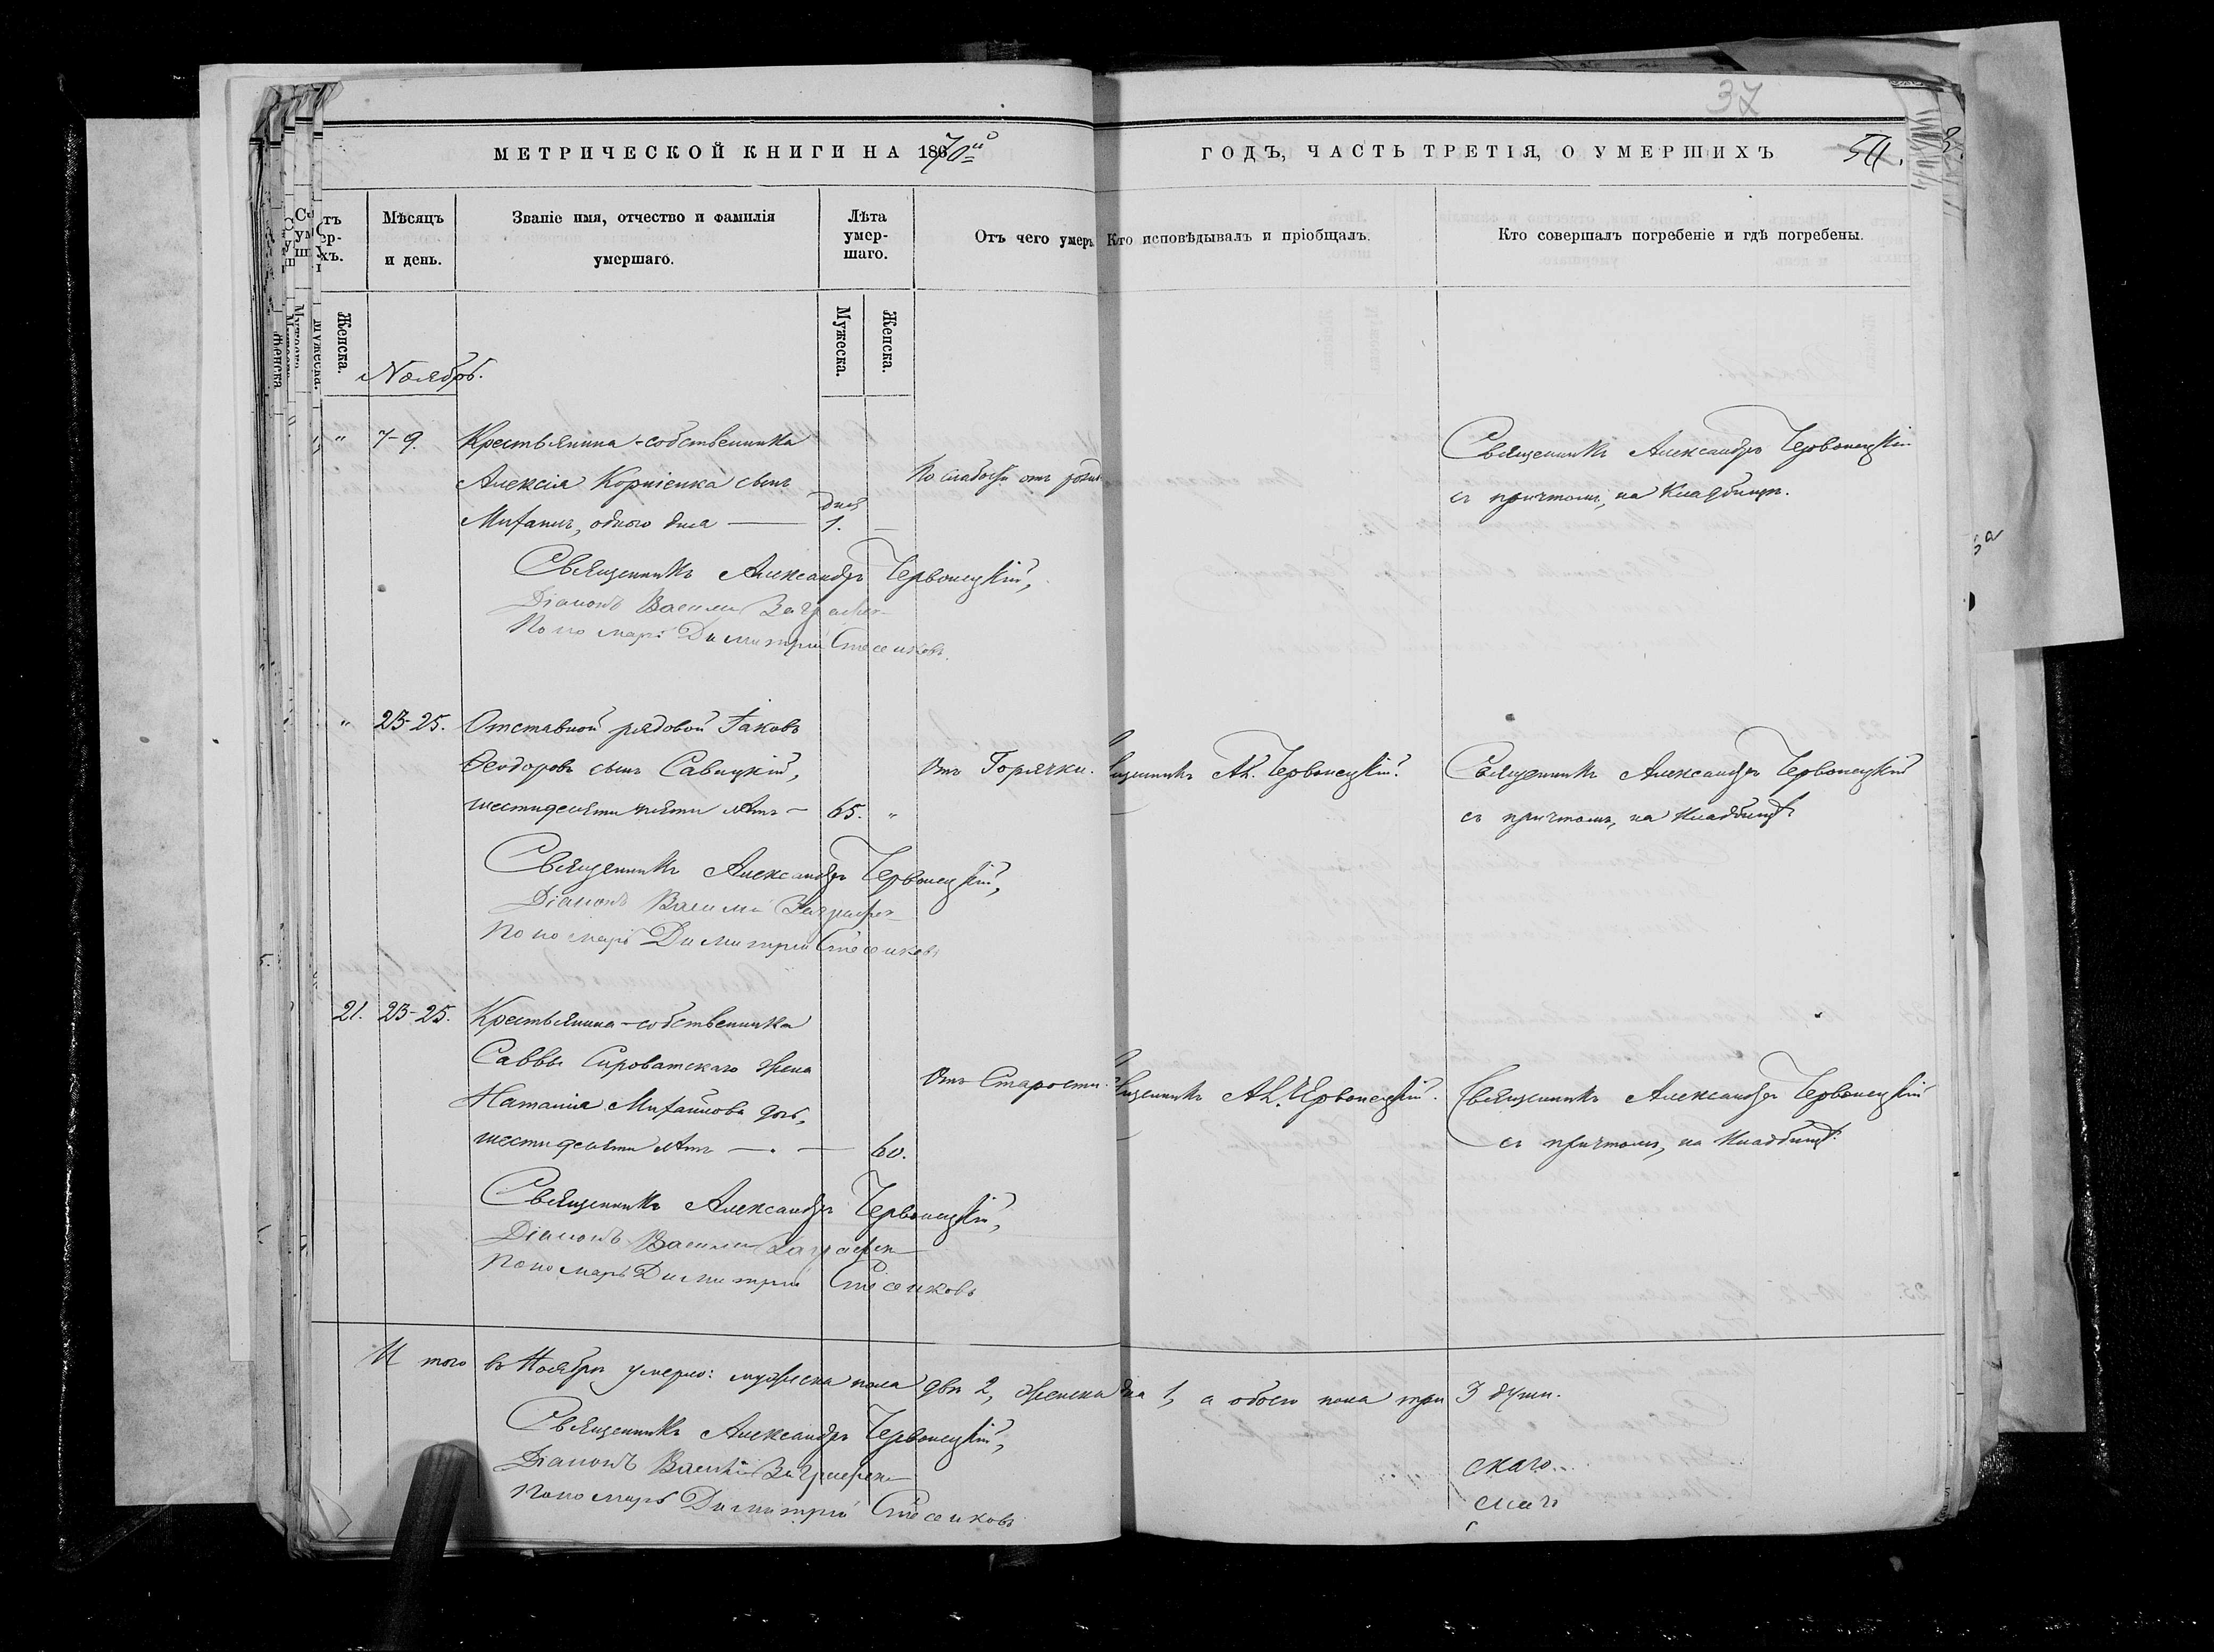 37
МЕТРИЧЕСКОЙ КНИГИ НА 1870й
ГОДЪ, ЧАСТЬ ТРЕТІЯ, О УМЕРШИХЪ
Мѣсяцъ и день.
Званіе имя, отчество и фамилія умершаго.
Лѣта умер-
шаго.
Отъ чего умеръ
Кто исповѣдывалъ и пріобщалъ.
Кто совершалъ погребеніе и гдѣ погребены.
Женска.
Мужеска.
Женска.
Ноябрь.
" 7-9. Крестьянина-собственника
Алексія Корніенка сынъ
Михаилъ, одного дня — дней 1. —
По слабости отъ рожд
Священникъ Александръ Червонецкій
съ причтомъ, на Кладбищѣ.
Священникъ Александръ Червонецкій,
Діаконъ Василій
Пономарь Димитрій Стесенковъ
" 23-25. Отставной рядовой Іаковъ
Ѳеодоровъ сынъ Савицкій,
шестидесяти пяти лѣтъ — 65. "
Отъ Горячки.
Священникъ Ал. Червонецкій.
Священникъ Александръ Червонецкій
съ причтомъ, на кладбищѣ
Священникъ Александръ Червонецкій,
Діаконъ Василій
Пономарь Димитрій Стесенковъ
21. 23-25. Крестьянина-собственника
Саввы Сыроватскаго жена
Наталія Михайлова дочь,
шестидесяти лѣтъ — . — 60.
Отъ Старости.
Священникъ Ал. Червонецкій.
Священникъ Александръ Червонецкій
съ причтомъ, на Кладбищѣ.
Священникъ Александръ Червонецкій,
Діаконъ Василій
Пономарь Димитрій Стесенковъ
И того въ Ноябрѣ умерло: мужеска пола двѣ 2, женска одна 1, а обоего пола три 3 души.
Священникъ Александръ Червонецкій,
Діаконъ Василій
Пономарь Димитрій Стесенковъ
скаго